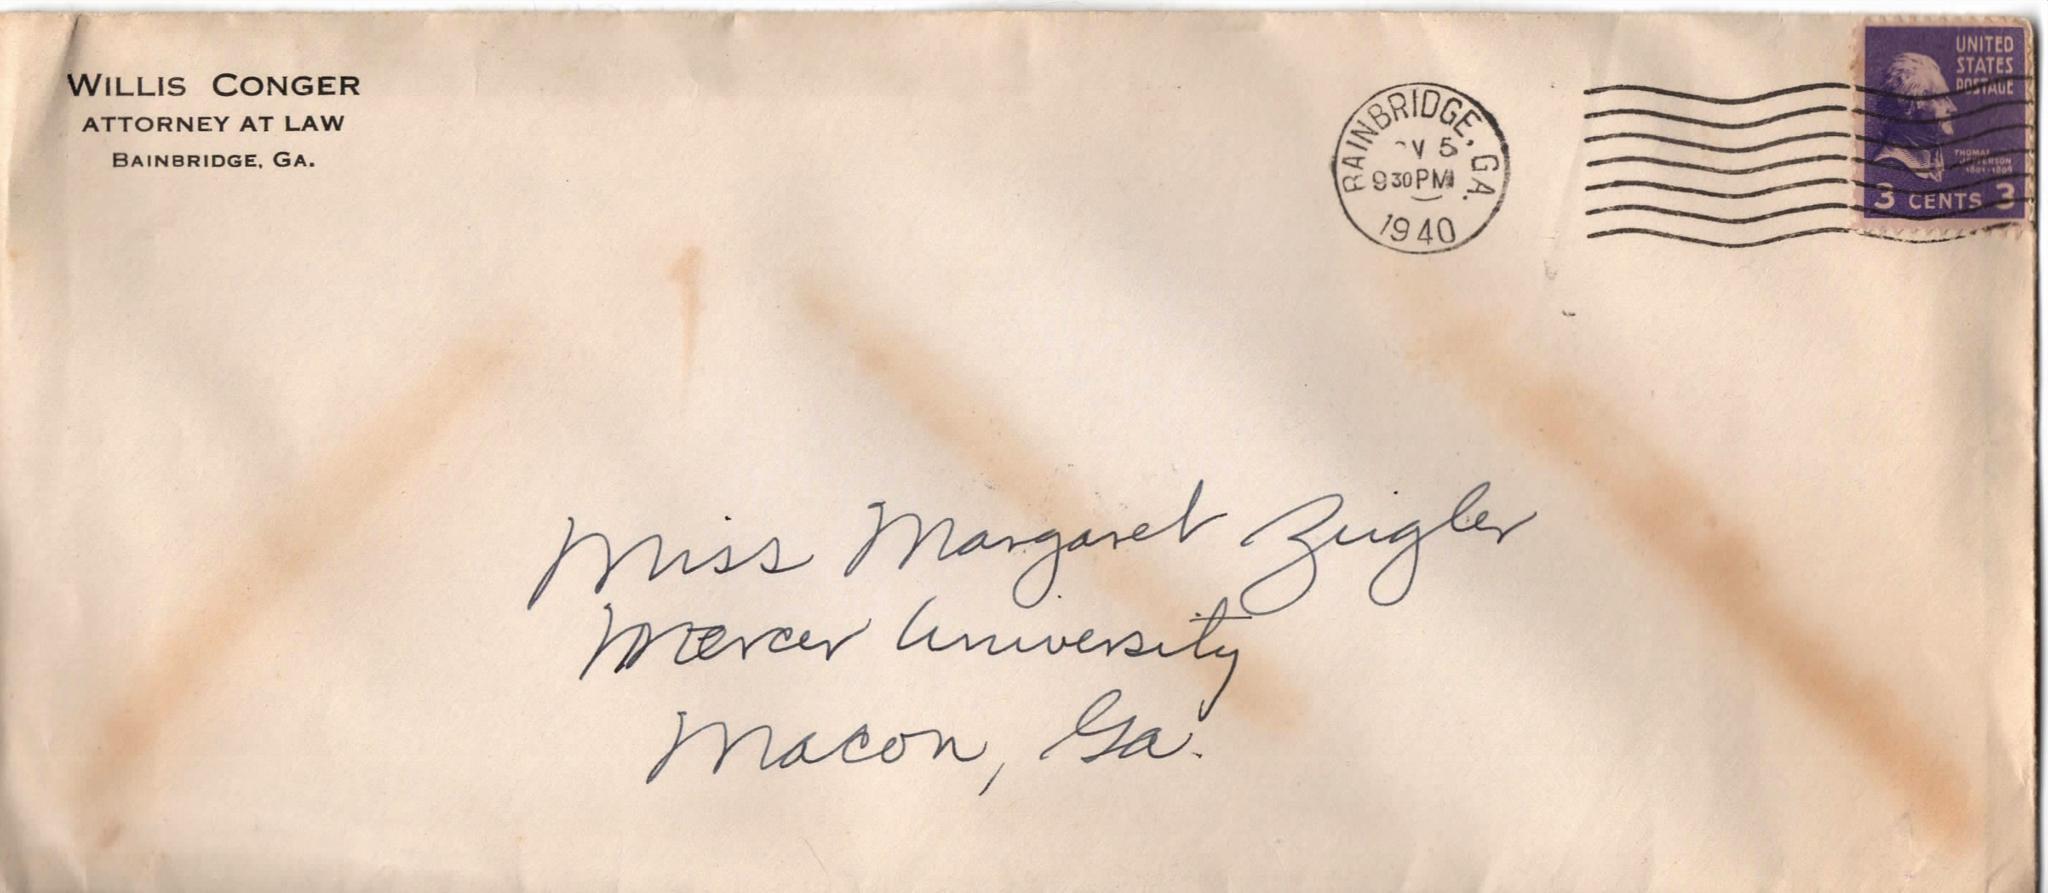 WILLIS CONGER
ATTORNEY AT LAW
BAINBRIDGE, GA.
BAINBRIDGE, GA.
5
9 30 PM
1940
UNITED
STATES
POSTAGE
THOMAS
JEFFERSON
1801-1809
3 CENTS 3
Miss Margaret Zeigler
Mercer University
Macon, Ga.